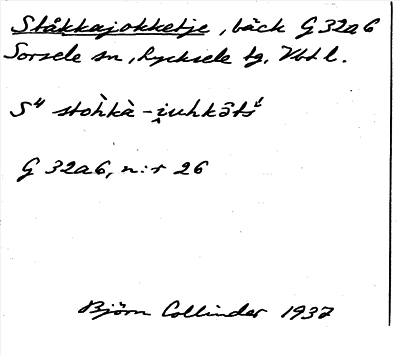 Ståkkajokketje, bäck G 32a6
Sorsele sn, Lycksele tg, Vbtl.
S⁴ stoh̀kà - i̯uhkōtsᵉ
G 32a6, n:r 26
Björn Collinder 1937